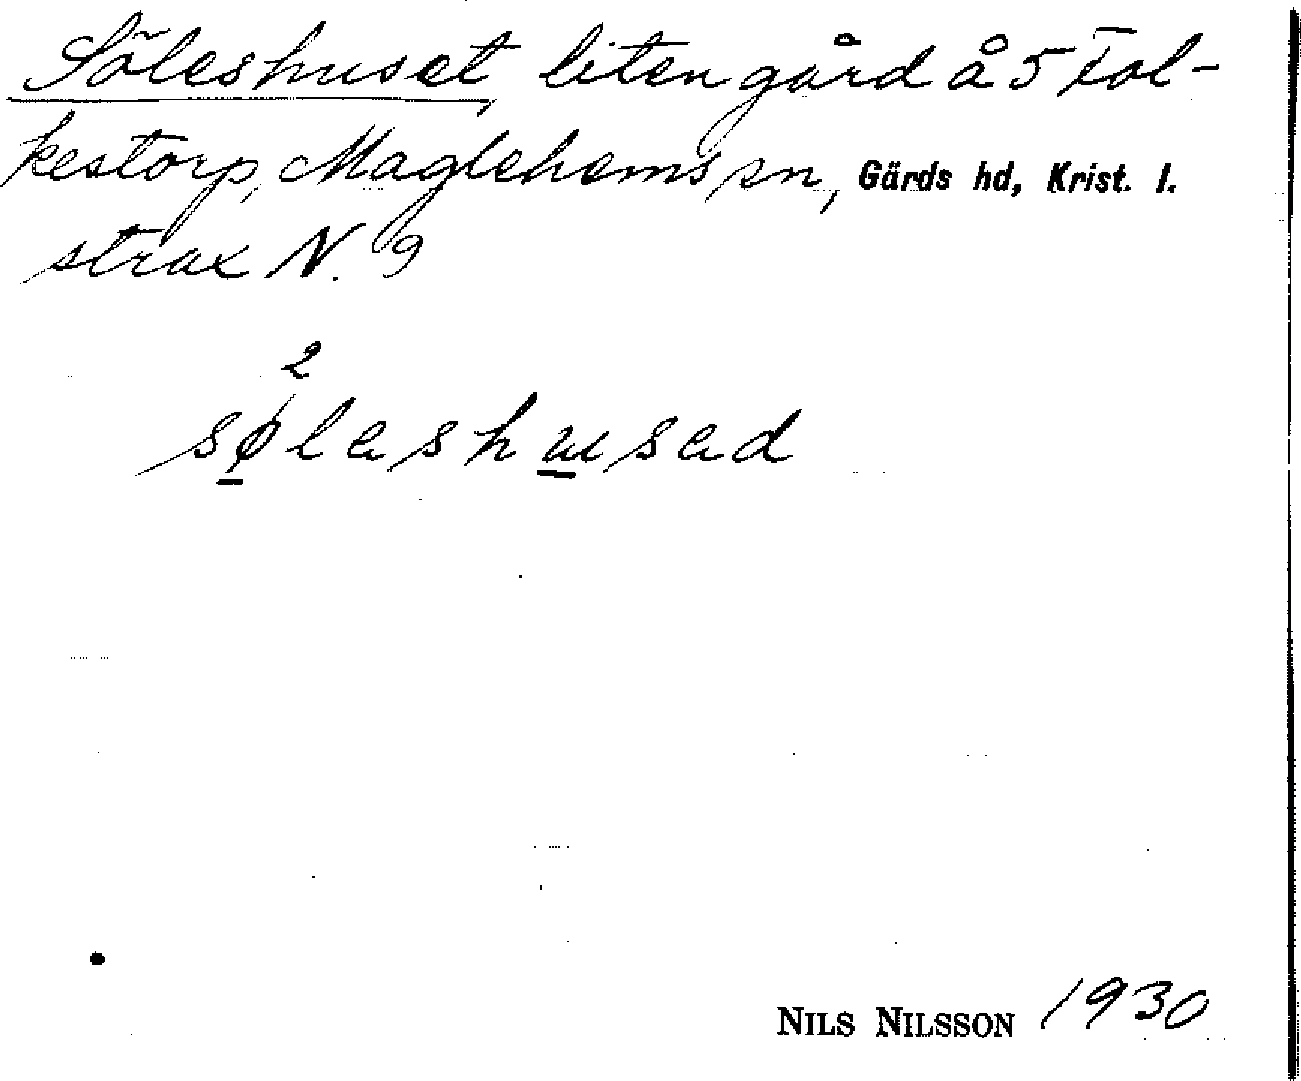 Söleshuset, liten gård å 5 Tol-
kestorp, Maglehems sn, Gärds hd, Krist. l.
strax N. 9
2
søleshusad
NILS NILSSON 1930